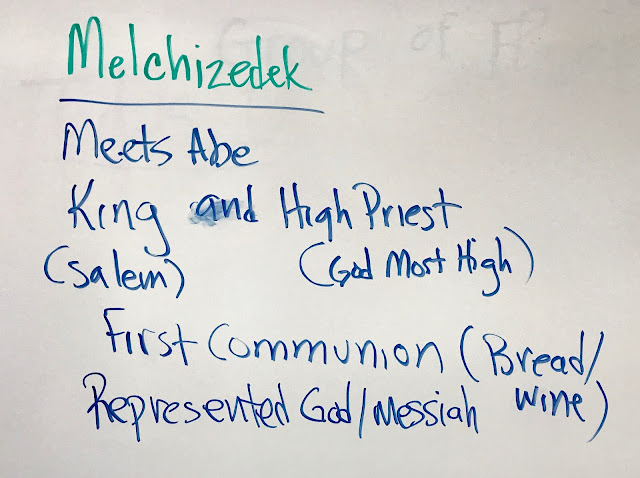 Group of
Melchizedek
Meets Abe
King and High Priest
(Salem) (God Most High)
First Communion (Bread/
Represented God/Messiah Wine)